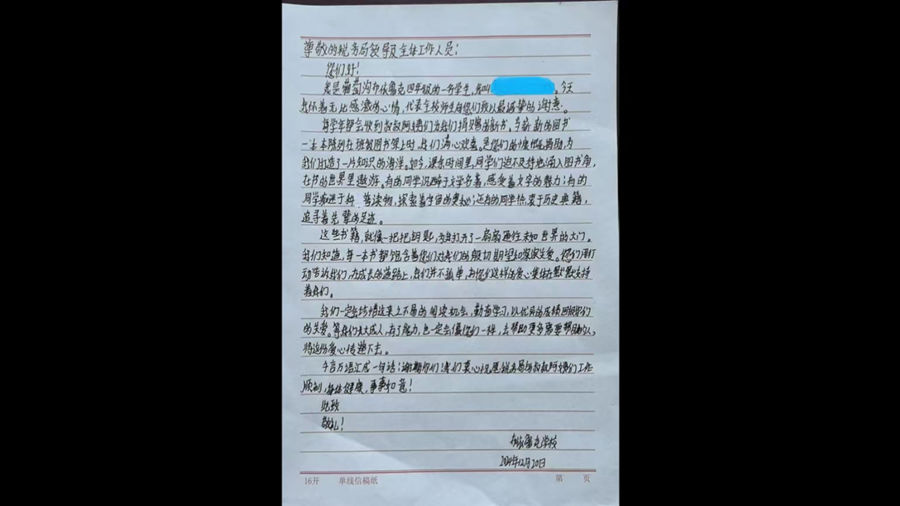 尊敬的税务局领导及全体工作人员：
您们好！
我是葡萄沟布依鲁克四年级的一名学生，我叫 。今天
我怀着无比感激的心情，代表全校师生向您们致以最诚挚的谢意。
每学年都会收到叔叔阿姨们为我们捐赠的新书。当崭新的图书
一本本陈列在班级图书架上时，我们满心欢喜。是您们的慷慨
我们打造了一片知识的海洋。如今，课余时间里，同学们迫不及待地涌入图书角，
在书的世界里遨游。有的同学沉醉于文学名著，感受着文字的魅力；有的
同学痴迷于科普读物，探索着宇宙的奥秘；还有的同学热衷于历史典籍，
追寻着先辈的足迹。
这些书籍，就像一把把钥匙，为我打开了一扇扇通往未知世界的大门。
我们知道，每一本书都饱含着您们对我们的殷切期望和深深关爱。您们用行
动告诉我们，在成长的道路上，我们并不孤单，有您们这样的爱心集体在默默支持
着我们。
我们一定会珍惜这来之不易的阅读机会，勤奋学习，以优异的成绩回报您们
的关爱。等我们长大成人，有了能力，也一定会像您们一样，去帮助更多需要帮助的人，
将这份爱心传递下去。
千言万语汇成一句话：谢谢你们！我们衷心祝愿税务局的叔叔阿姨们工作
顺利，身体健康，事事如意！
此致
敬礼！
布依鲁克学校
2024年12月20日
16开 单线信稿纸 第 页